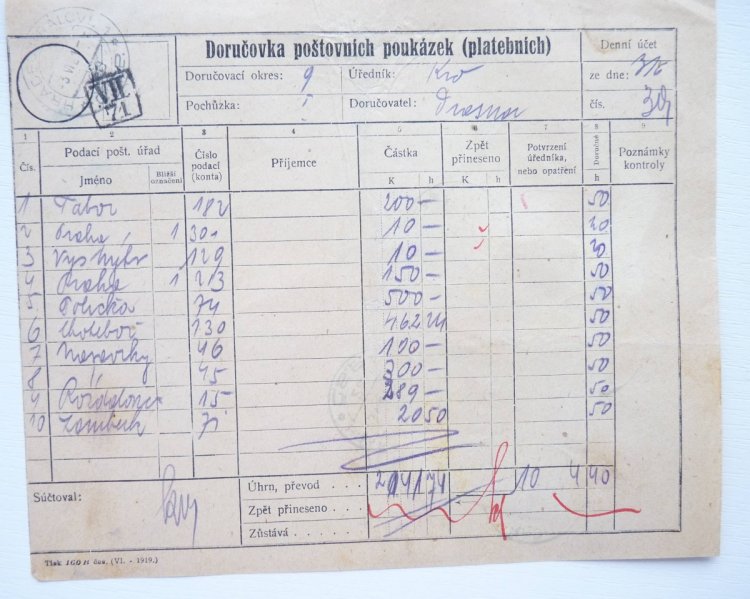 VII.
Doručovka poštovních poukázek (platebních)
Denní účet
Doručovací okres: 9 Úředník: ze dne:
Pochůzka: Doručovatel: čís.
1 2 3 4 5 6 7 8 9
Čís. Podací pošt. úřad Číslo podací (konta) Příjemce Částka Zpět přineseno Potvrzení úředníka, nebo opatření Doručné Poznámky kontroly
Jméno Bližší označení K h K h h
1 Tabor 182 200 — 50
2 Praha 1 301 10 — 20
3 129 10 — 20
4 Praha 1 213 150 — 50
5 Polička 74 500 — 50
6 Choteboř 130 462 24 50
7 46 100 — 50
8 " 45 300 — 50
9 15 289 — 50
10 20 50 50
Súčtoval: Úhrn, převod . . . 2041 74 10 4 40
Zpět přineseno . . .
Zůstává . . .
Tisk 160 B čes. (VI. - 1919.)